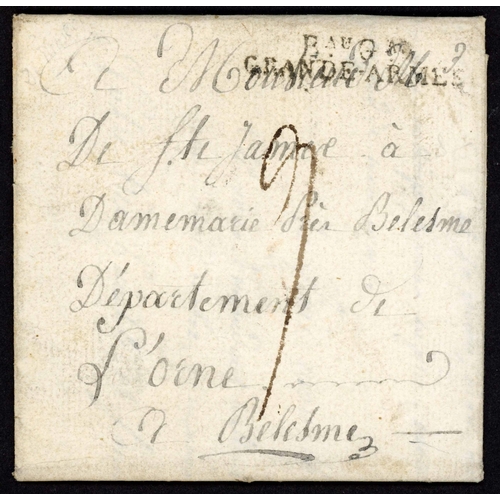 B. AU G AL
GRANDE-ARMÉE
A Monsieur
De Ste Jamme à
Damemarie Près Belesme
Département de
L'orne
a Bélesme
9